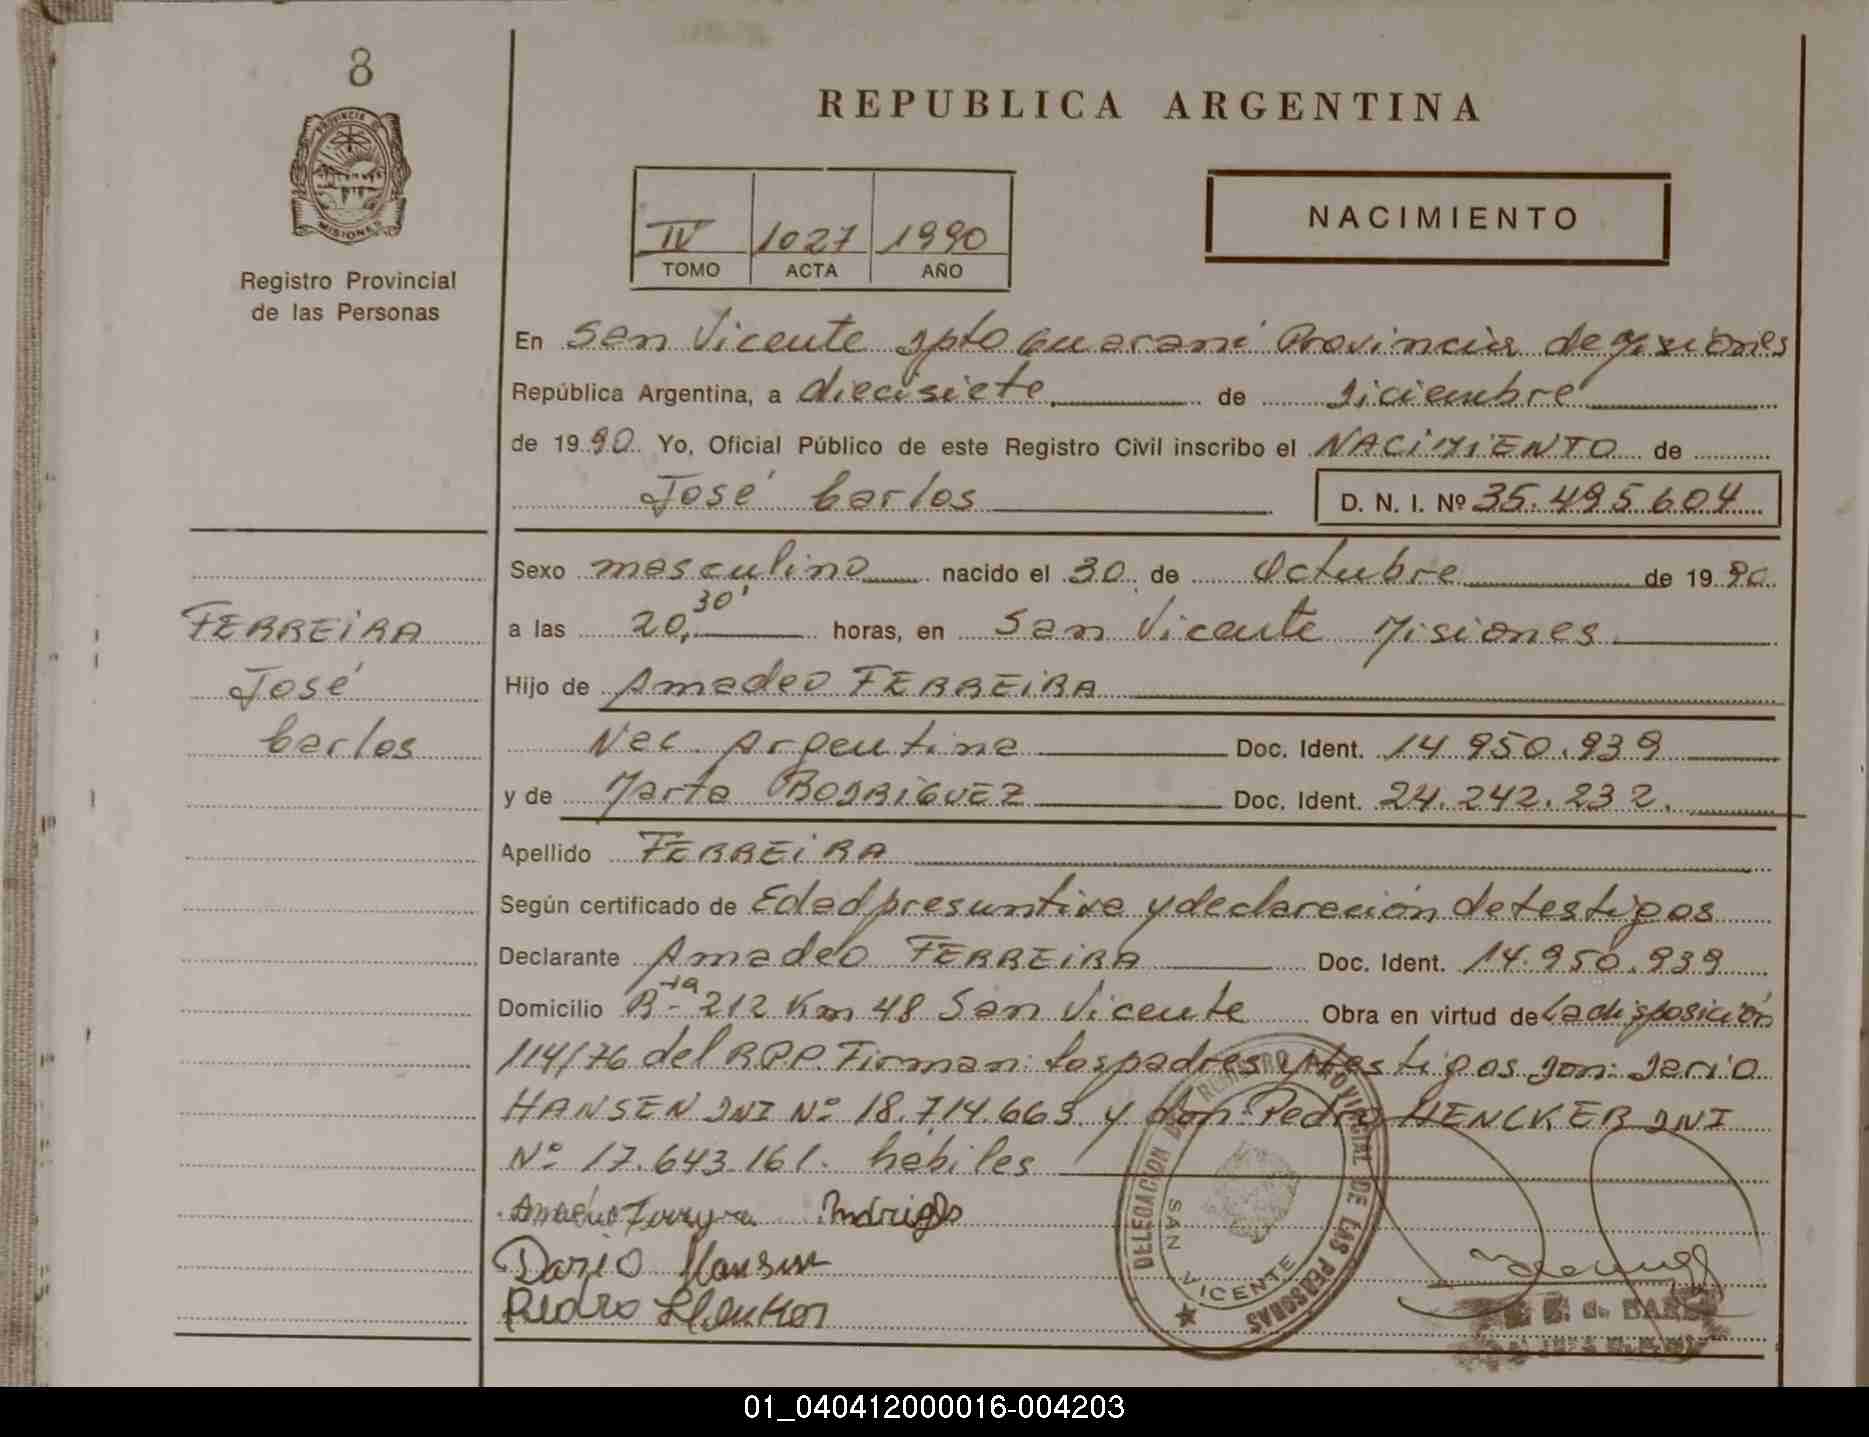 8
PROVINCIA DE
MISIONES
Registro Provincial
de las Personas
REPUBLICA ARGENTINA
IV 1027 1990
TOMO ACTA AÑO
NACIMIENTO
En San Vicente Dpto Guaraní Provincia de Misiones
República Argentina, a diecisiete de Diciembre
de 1990 Yo, Oficial Público de este Registro Civil inscribo el NACIMIENTO de
José Carlos D. N. I. Nº 35.495.604
Sexo masculino nacido el 30 de Octubre de 1990
FERREIRA
José
Carlos
a las 20,30' horas, en San Vicente Misiones
Hijo de Amadeo FERREIRA
Nac. Argentina Doc. Ident. 14.950.939
y de Marta RODRIGUEZ Doc. Ident. 24.242.232.
Apellido FERREIRA
Según certificado de Edad presuntiva y declaración de testigos
Declarante Amadeo FERREIRA Doc. Ident. 14.950.939
Domicilio R-ta 212 Km 48 San Vicente Obra en virtud de La disposición
114/76 del R.P.P. Firman: Los padres y testigos Don: Dario
HANSEN DNI Nº 18.714.663 y don: Pedro HENCKER DNI
Nº 17.643.161. hábiles
Dario Hansen
Pedro
DELEGACION REGISTRO PROVINCIAL DE LAS PERSONAS
SAN VICENTE
01_040412000016-004203